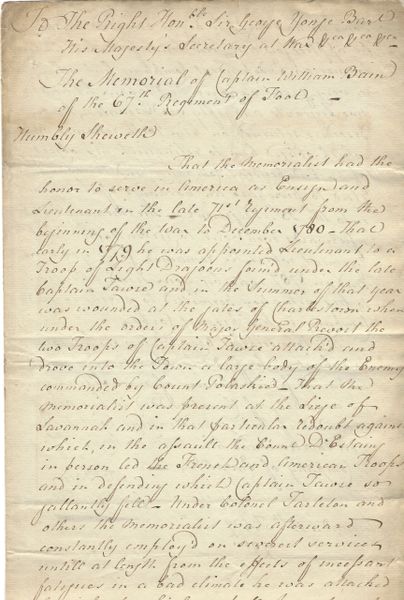 To The Right Honble Sir George Yonge Bart
His Majesty's Secretary at War &ca &ca &ca
The Memorial of Captain William Bain
of the 67th Regiment of Foot —
Humbly Sheweth
That the Memorialist had the
honor to serve in America as Ensign and
Lieutenant in the late 71st Regiment from the
beginning of the War to December 1780 — That
early in 1779 he was appointed Lieutenant to a
Troop of Light Dragoons found under the late
Captain Tawse and in the Summer of that year
was wounded at the gates of Charlestown when
under the orders of Major General Prevost the
two Troops of Captain Tawse attack'd and
drove into the Town a large body of the Enemy
commanded by Count — That the
Memorialist was present at the Siege of
Savannah and in that particular redoubt against
which, in the assault the Count D'Estaing
in person led the French and American Troops
and in defending which Captain Tawse so
gallantly fell — Under Colonel Tarleton and
others the Memorialist was afterward
constantly employ'd on severest services
untill at length from the effects of incessant
fatigues in a bad climate he was attacked